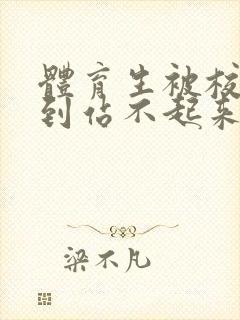 體育生被校
到佔不起來
梁不凡